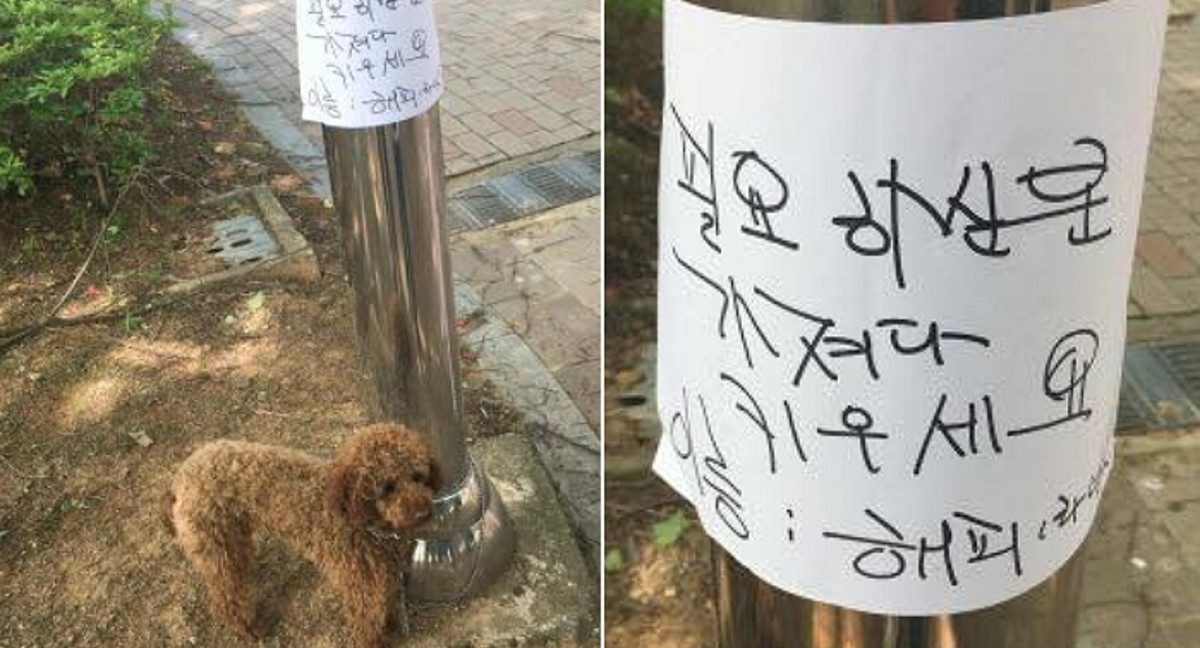 필요 하신분
가져다
키우세요
이름 : 해피
필요 하신분
가져다
키우세요
이름 : 해피